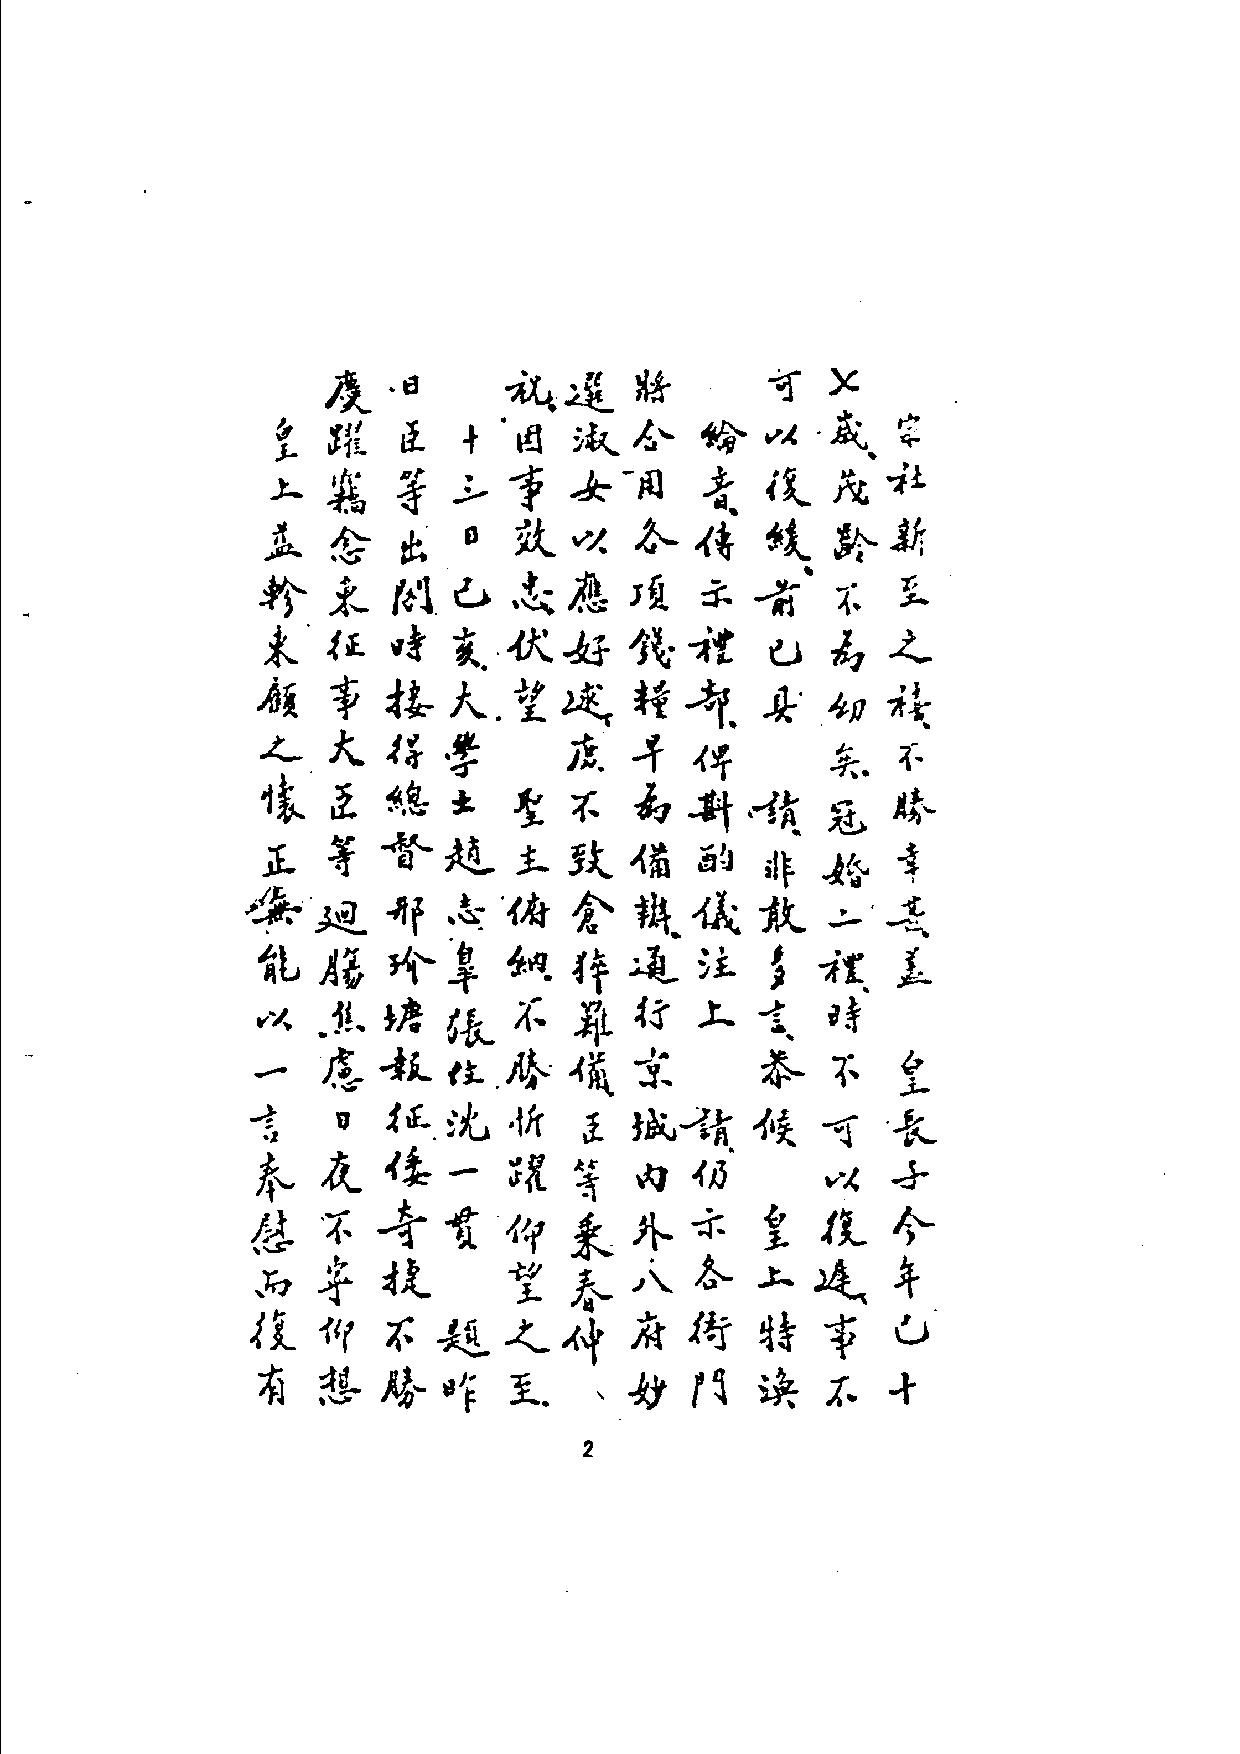 宗社新至之禧、不勝幸甚、蓋　皇長子今年已十
七歲、茂齡不為幼矣、冠婚二禮、時不可以復遲、事不
可以復緩、前已具　請、非敢多言、恭候　皇上特渙
綸音、傳示禮部、俾斟酌儀注上　請、仍示各衙門
將合用各項錢糧早為備辦、通行京城內外八府妙
選淑女以應好逑、庶不致倉猝難備、臣等乘春仲、
祝、因事效忠、伏望　聖主俯納、不勝忻躍仰望之至、
十三日己亥、大學士趙志皐張位沈一貫　題昨
日臣等出閣時接得總督邢玠塘報征倭奇捷不勝
慶躍竊念東征事大臣等迴腸焦慮日夜不寧仰想
皇上益軫東顧之懷正無能以一言奉慰而復有
2